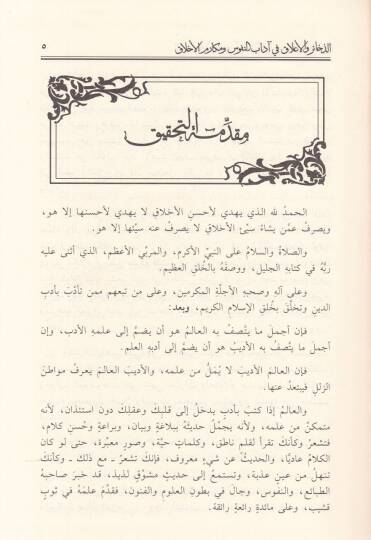 الذخائر والأعلاق في آداب النفوس ومكارم الأخلاق ٥
مقدمة التحقيق
الحمدُ لله الذي يهدي لأحسنِ الأخلاقِ لا يهدي لأحسنها إلا هو،
ويصرفُ عمَّن يشاءُ سيِّئَ الأخلاقِ لا يصرفُ عنه سيِّئها إلا هو.
والصلاةُ والسلامُ على النبيِّ الأكرم، والمربِّي الأعظم، الذي أثنى عليه
ربُّهُ في كتابهِ الجليل، ووصفَهُ بالخُلقِ العظيم.
وعلى آلهِ وصحبهِ الأجلَّةِ المكرمين، وعلى من تبعهم ممن تأدَّبَ بأدبِ
الدينِ وتخلَّقَ بخُلقِ الإسلامِ الكريم، وبعد:
فإن أجملَ ما يتَّصفُ به العالمُ هو أن يضمَّ إلى علمهِ الأدب، وإن
أجملَ ما يتَّصفُ به الأديبُ هو أن يضمَّ إلى أدبهِ العلم.
فإن العالمَ الأديبَ لا يُمَلُّ من علمه، والأديبَ العالمَ يعرفُ مواطنَ
الزللِ فيبتعدُ عنها.
والعالمُ إذا كتبَ بأدبٍ يدخلُ إلى قلبكَ وعقلكَ دون استئذان، لأنه
متمكنٌ من علمه، ولأنه يجمِّلُ حديثَهُ ببلاغةٍ وبيان، وبراعةٍ وحسنِ كلام،
فتشعرُ وكأنكَ تقرأُ لقلمٍ ناطق، وكلماتٍ حيَّة، وصورٍ معبِّرة، حتى لو كان
الكلامُ عاديًّا، والحديثُ عن شيءٍ معروف، فإنكَ تشعرُ ـ مع ذلك ـ وكأنكَ
تنهلُ من عينٍ عذبة، وتستمعُ إلى حديثٍ مشوِّقٍ لذيذ، قد خبرَ صاحبهُ
الطبائع، والنفوس، وجالَ في بطونِ العلومِ والفنون، فقدَّمَ علمَهُ في ثوبٍ
قشيب، وعلى مائدةٍ رائعةٍ رائقة.